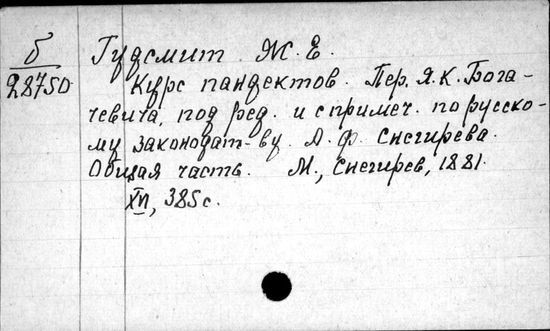 б
28750
Гудсмит Ж. Е.
Курс пандектов. Пер. Я. К. Бога-
чевича, под ред. и с примеч. по русско-
му законодат-ву А. Ф. Снегирева.
Общая часть. М., Снегирев, 1881.
XII, 385 с.